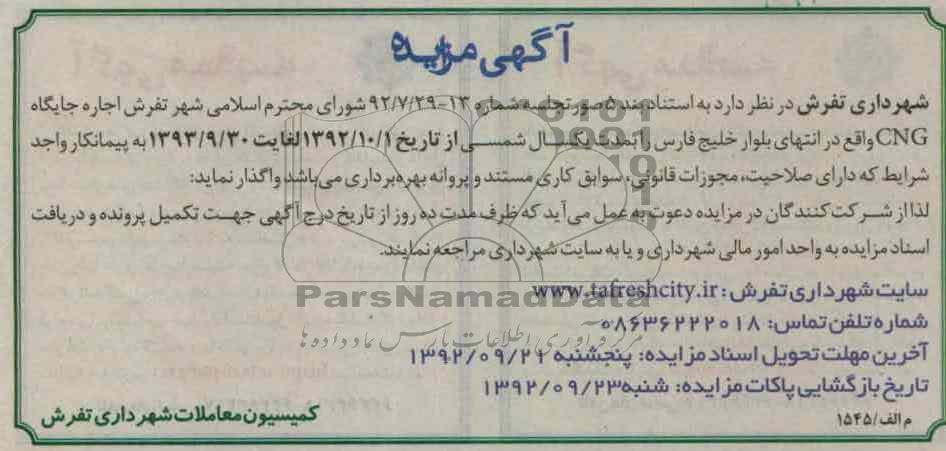 آگهی مزایده
شهرداری تفرش در نظر دارد به استناد بند ۵ صورتجلسه شماره ۱۳-۹۲/۷/۲۹ شورای محترم اسلامی شهر تفرش اجاره جایگاه
CNG واقع در انتهای بلوار خلیج فارس را بمدت یکسال شمسی از تاریخ ۱۳۹۲/۱۰/۱ لغایت ۱۳۹۳/۹/۳۰ به پیمانکار واجد
شرایط که دارای صلاحیت، مجوزات قانونی، سوابق کاری مستند و پروانه بهره‌برداری می‌باشد واگذار نماید:
لذا از شرکت کنندگان در مزایده دعوت به عمل می آید که ظرف مدت ده روز از تاریخ درج آگهی جهت تکمیل پرونده و دریافت
اسناد مزایده به واحد امور مالی شهرداری و یا به سایت شهرداری مراجعه نمایند.
سایت شهرداری تفرش: www.tafreshcity.ir
ParsNamadData
شماره تلفن تماس: ۰۸۶۳۶۲۲۲۰۱۸
مرکز فرآوری اطلاعات پارس نماد داده ها
آخرین مهلت تحویل اسناد مزایده: پنجشنبه ۱۳۹۲/۰۹/۲۱
تاریخ بازگشایی پاکات مزایده: شنبه ۱۳۹۲/۰۹/۲۳
م الف/۱۵۴۵
کمیسیون معاملات شهرداری تفرش